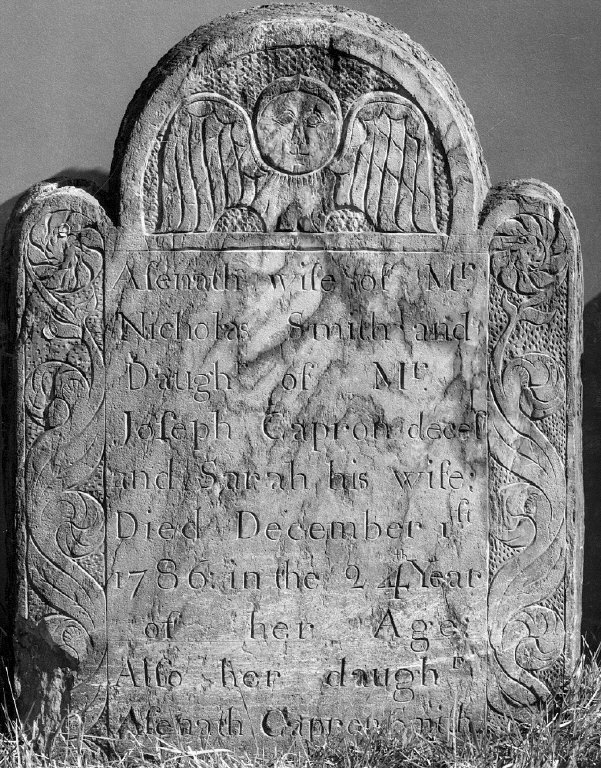 Aſenath wife of Mʳ
Nicholas Smith and
Daugh of Mʳ.
Joſeph Capron deceſ
and Sarah his wife;
Died December 1ſt
1786: in the 24th Year
of her Age;
Alſo her daughʳ
Aſenath Capron Smith.